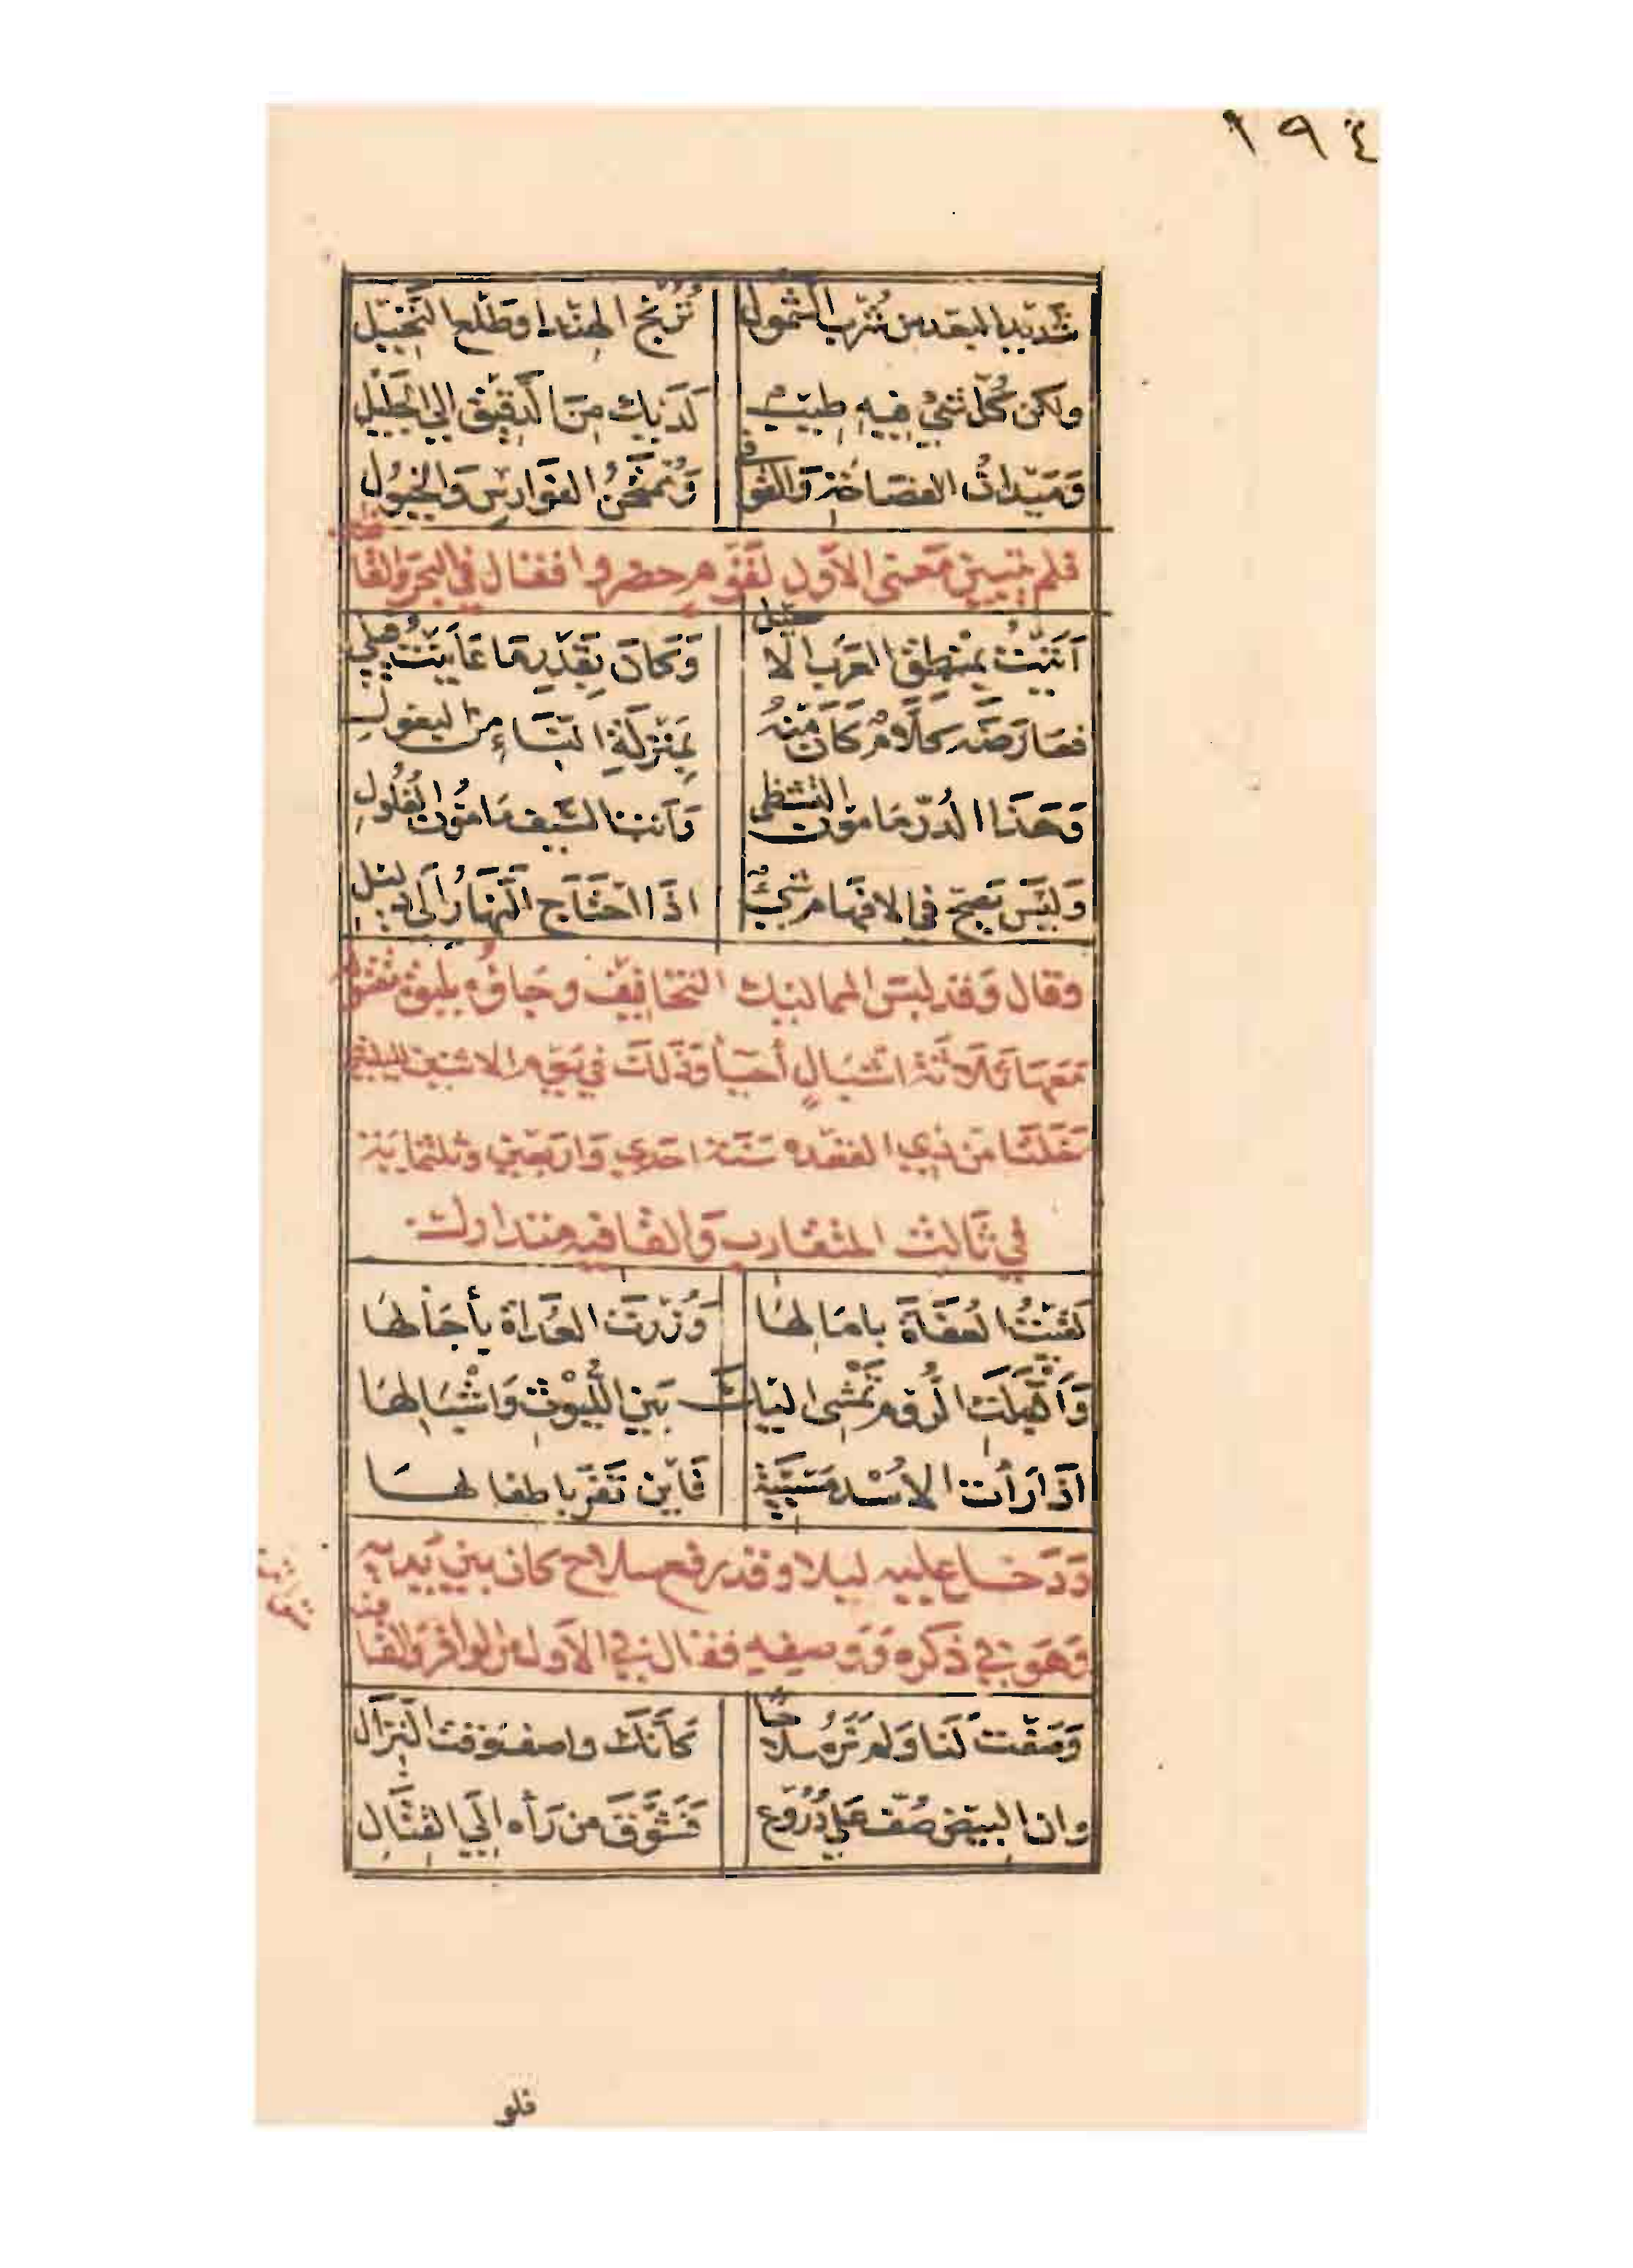 ١٩٤
شَديد البعد من شُرب الشمول تُرُنج الهند او طَلْع النَّخيل
ولكن كُلّ شيءٍ فيه طِيبٌ لدَيك مِنَ الدَقيق إلى الجَليل
وَمَيدان الفصَاحَة وَالقوافي وَمُمتَحَنُ الفَوارس وَالخيُول
فلم يتبين مَعنى الأوّل لقَوم حضروا فقال في البحر والقا فيه
أتَيتُ بمنطِق العَرَب الأ صيل وَكانَ بقَدْرِ مَا عَايَنتُ قِيلي
فعَارَضَهُ كلَامٌ كَانَ مِنْهُ بمَنزِلَةِ النسَاءِ مِنَ البعُولِ
وَهَذا الدُرّ مَامون التشظّى وَأنتَ السَّيف مَامُون الفُلُولِ
وَلَيْسَ يَصِحّ في الافهَام شَيءٌ اذَا احْتَاج النَّهَارُ إلَى دليل
وقال وَقد لبسَ المماليك التخافيف وجَاؤُه بلبوة مقتولة
مَعَها ثلَاثَة اشبَالٍ أحيَاء وَذَلكَ في يَوم الاثنين لليلتين
خَلَتَا من ذي القعده سَنَة احدي وَاربَعين وثلثماية
في ثَالث المتقارب وَالقافيه متدارك
لقيتُ العُفَاةَ بامَالِهَا وَزُرتَ العُدَاةَ بأجَالهَا
وَأقْبَلَتِ الرُّوم تَمْشِى اليكَ بَين اللُّيُوث وَاشْبَالهَا
اذَا رَأت الاُسْد مَسْبِيَّة فَأين تَفرّ باطفالهَا
وَدَخل عليه ليلا وقد رفع سلاح كان بين يَديه
وَهو في ذكره وَوَصفِه فقال في الأول من الوافر وَالقا فيه متواتر
وَصَفتَ لَنا وَلم نَرَهُ سلَا حًا كَأنّكَ واصف وقت النِزَال
وان البَيض صُفّ عَلى دُرُوع فَشَوَّقَ مَن رَأه إلى القتَالِ
فلو